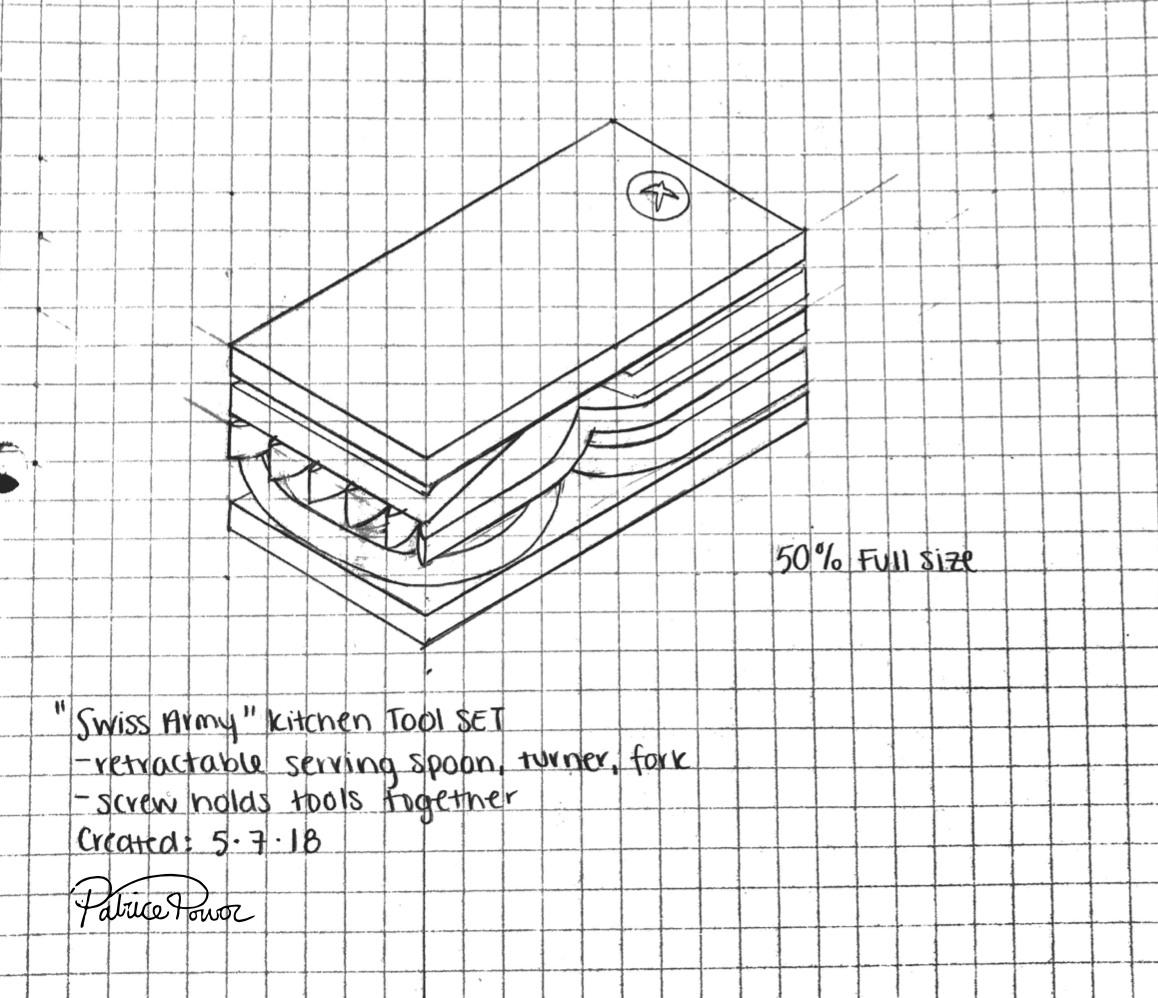 50% Full size
"Swiss Army" Kitchen Tool SET
-retractable serving spoon, turner, fork
-screw holds tools together
Created: 5.7.18
Patrice Power